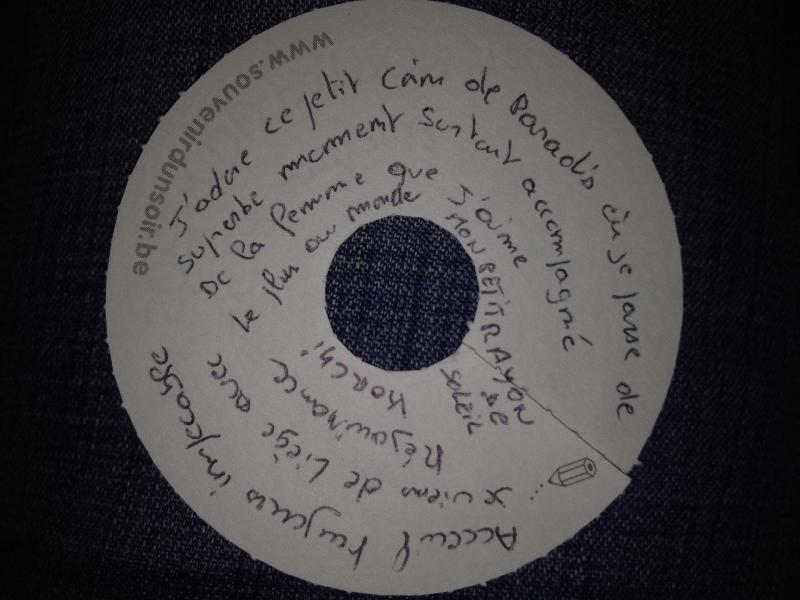 www.souvenirdunsoir.be
J'adore ce petit coin de Paradis où je passe de
superbe moment surtout accompagné
De la femme que j'aime
le plus au monde
MON PETIT RAYON
DE
SOLEIL
Acceuil toujours impeccable
je viens de Liège avec
Réjouissance